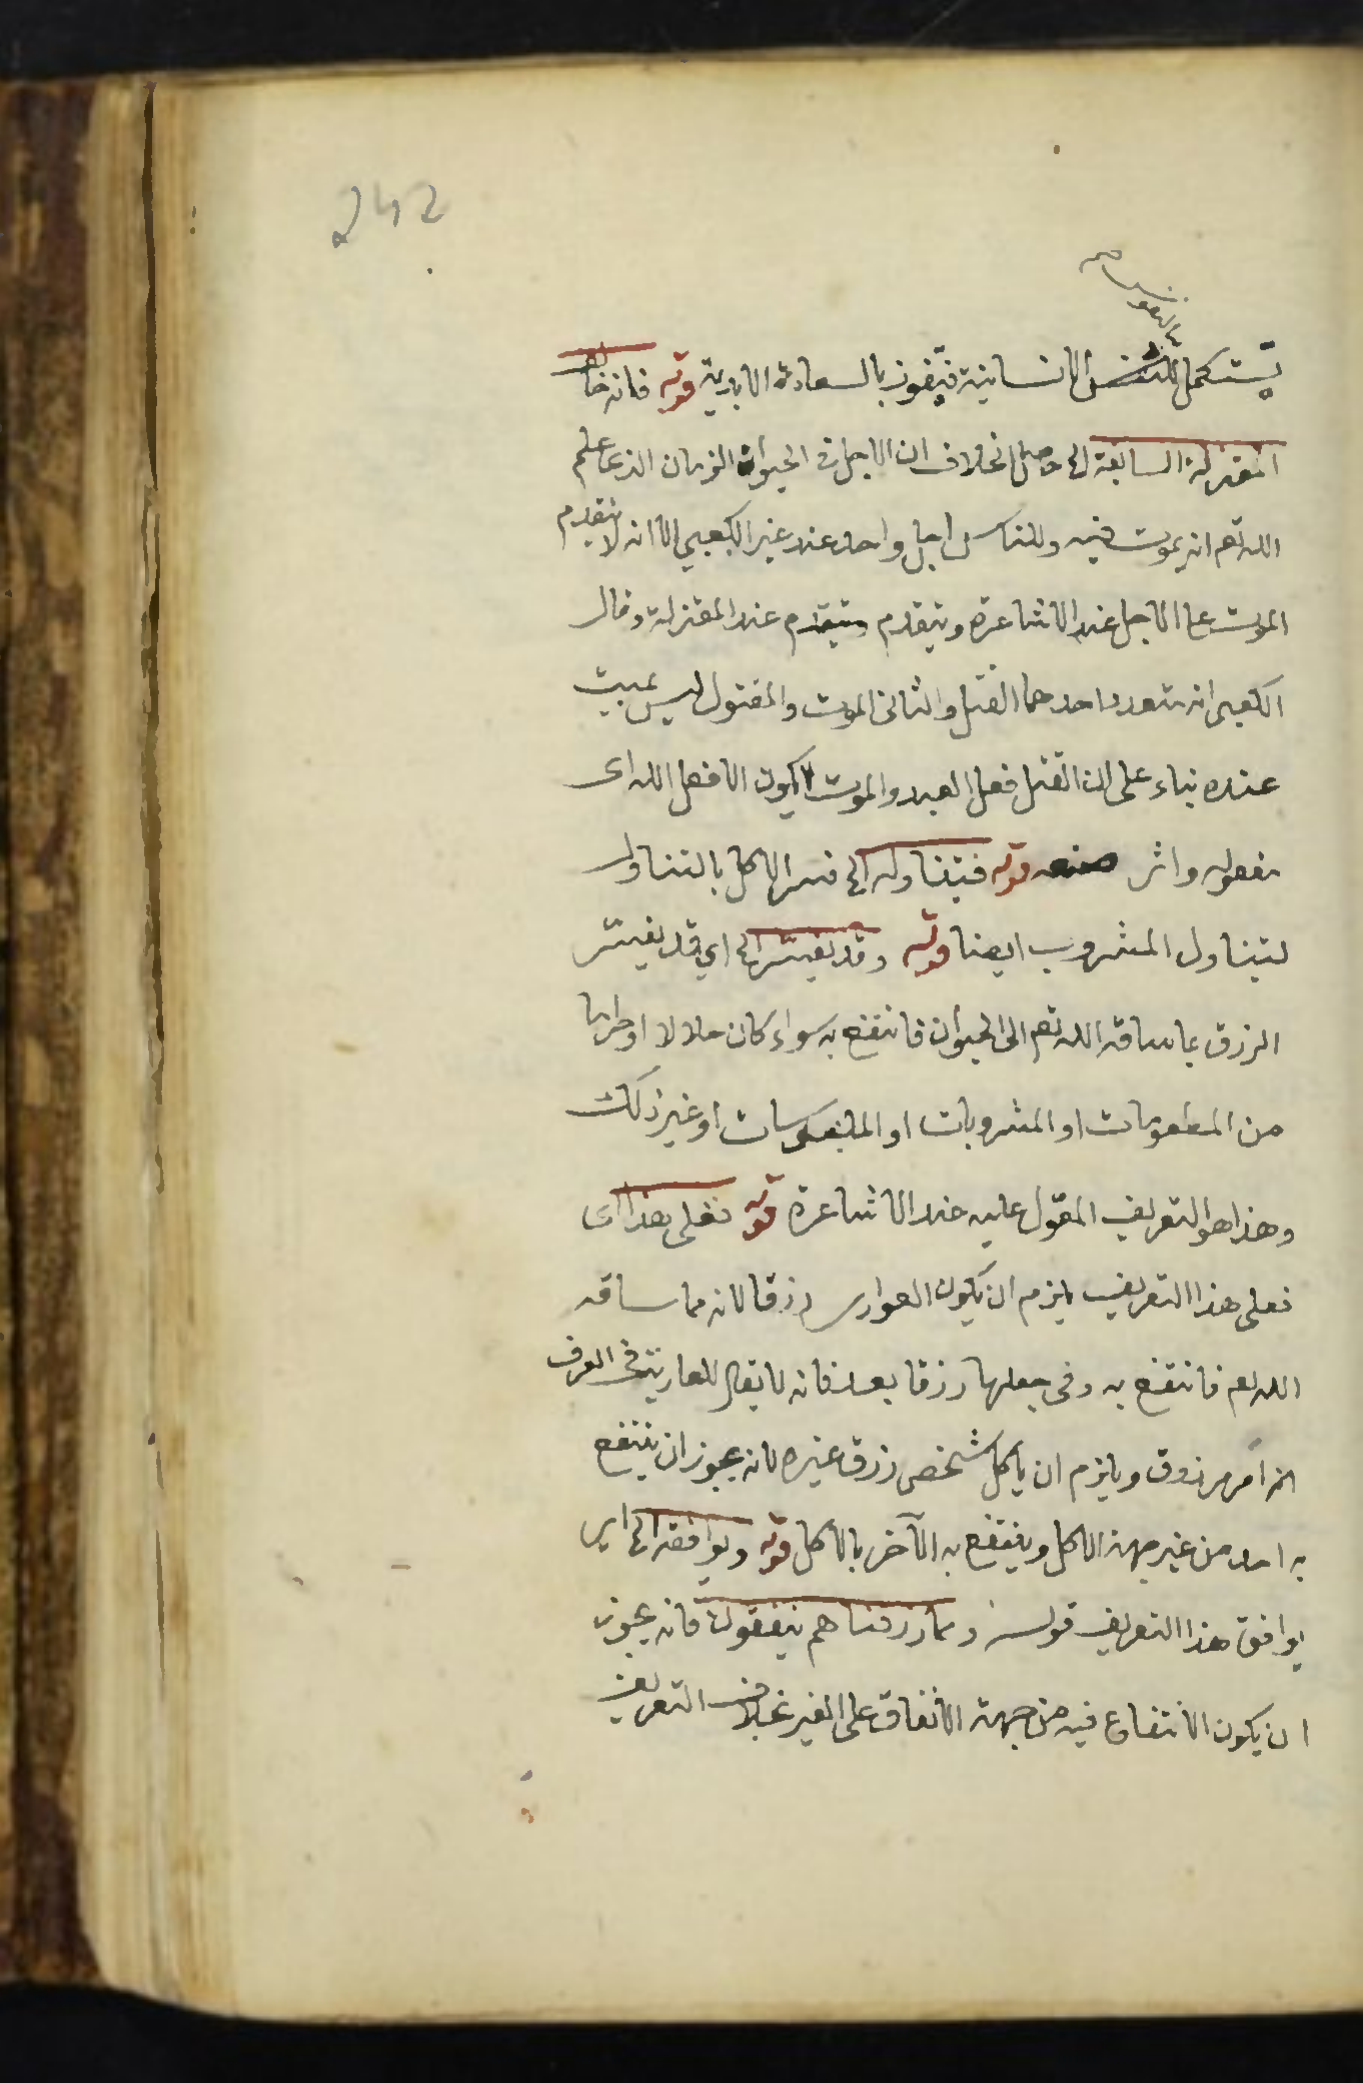 242
النفوس صح
يستكمل للنفس الانسانية فيفوز بالسعادة الابدية قوله فانه خالف
المعتزلة السابقة الخ حاصل الخلاف ان الاجل في الحيوان الزمان الذي علم
الله تعم انه يموت فيه وللناس اجل واحد عند غير الكعبي الا انه لا يتقدم
الموت على الاجل عند الاشاعرة ويتقدم عند المعتزلة وقال
الكعبي انه متعدد احدهما القتل والثاني الموت والمقتول ليس بميت
عنده بناء على ان القتل فعل العبد والموت لا يكون الا فعل الله اى
مفعوله واثر صنعه قوله فيتناوله الخ فسر الاكل بالتناول
ليتناول المشروب ايضا قوله وقد يفسر الخ اي قد يفسر
الرزق بما ساقه الله تعم الى الحيوان فانتفع به سواء كان حلالا او حراما
من المطعومات او المشروبات او الملبوسات او غير ذلك
وهذا هو التعريف المقول عليه عند الاشاعرة قوله فعلى هذا اى
فعلى هذا التعريف يلزم ان يكون العوارى رزقا لانه مما ساقه
الله تعم فانتفع به وفى جعلها رزقا بعد فانه لا يقال للعارية فى العرف
انه مرزوق ويلزم ان ياكل شخص رزق غيره لانه يجوز ان ينتفع
به احد من غير جهة الاكل وينتفع به الآخر بالاكل قوله ويوافقه الخ اى
يوافق هذا التعريف قوله ومما رزقناهم ينفقون فانه يجوز
ان يكون الانتفاع فيه من جهة الانفاق على الغير بخلاف التعريف